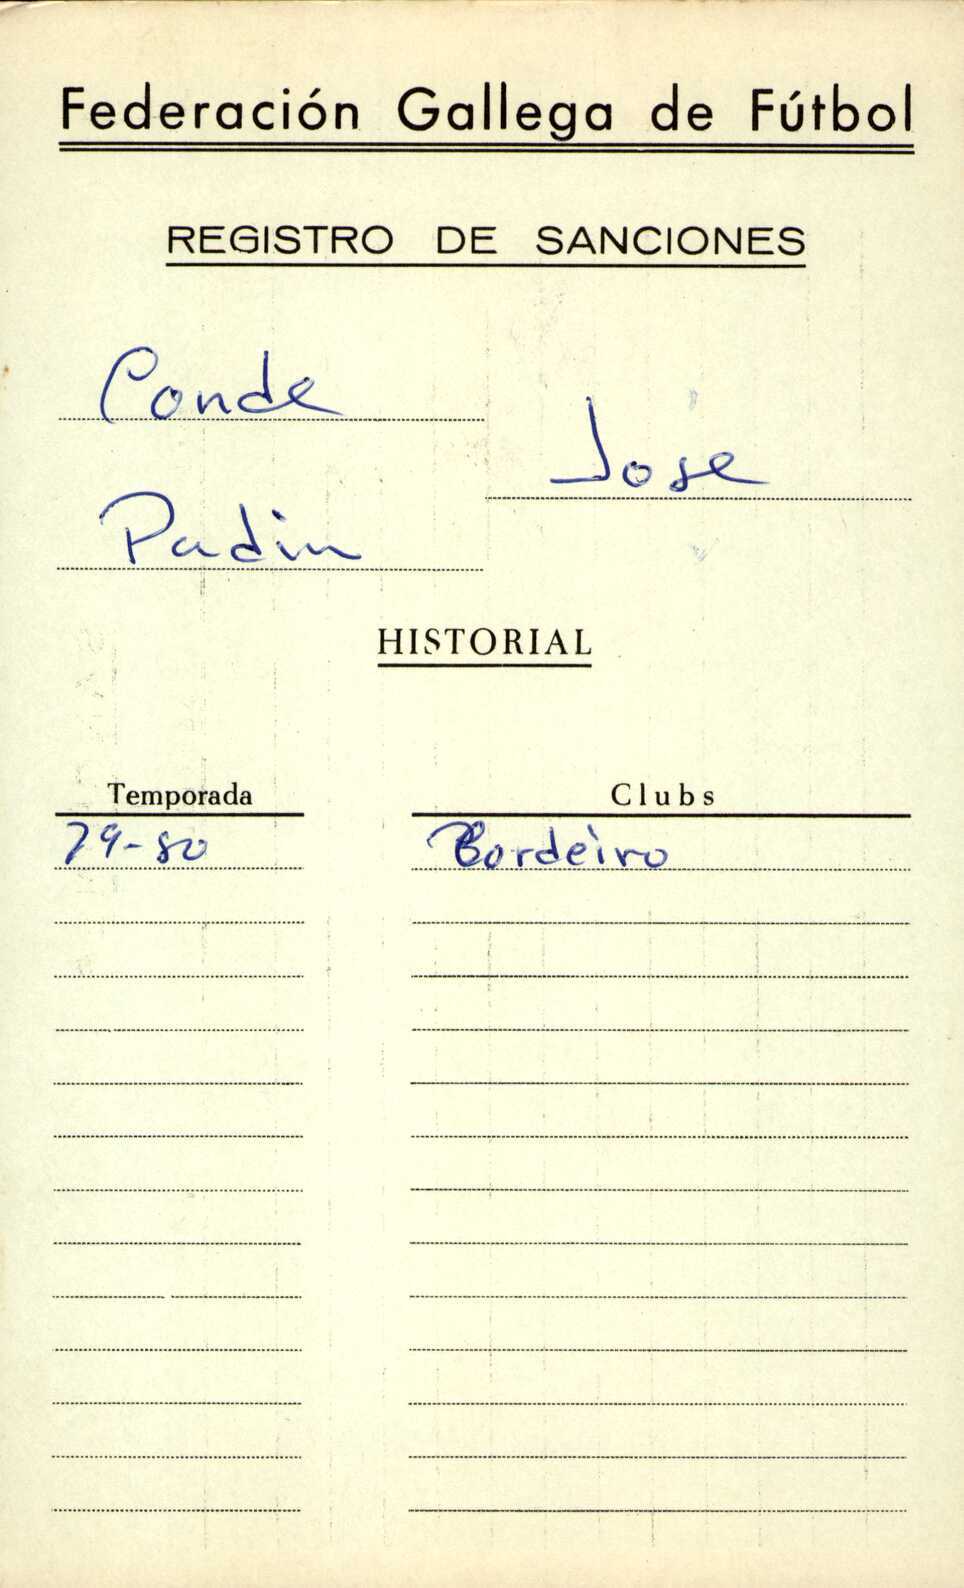 Federación Gallega de Fútbol
REGISTRO DE SANCIONES
Conde
Jose
Padin
HISTORIAL
Temporada Clubs
79-80 Bordeiro